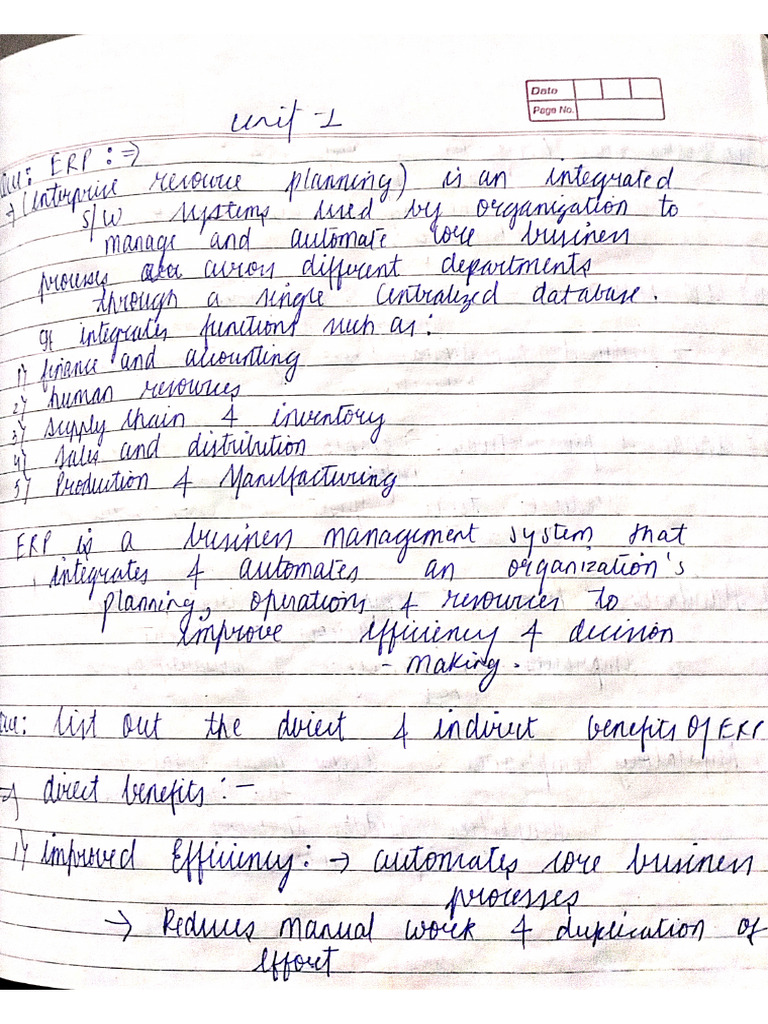 Date
Page No.
Unit - 1
Que: ERP :→
→ (Enterprise resource planning) is an integrated
s/w systems used by organization to
manage and automate core business
processes across different departments
through a single centralized database.
It integrates functions such as:
1) finance and accounting
2) human resources
3) supply chain & inventory
4) sales and distribution
5) Production & Manufacturing
ERP is a business management system that
integrates & automates an organization's
planning, operations & resources to
improve efficiency & decision
- making.
Que: list out the direct & indirect benefits of ERP
→ direct benefits :-
1) improved Efficiency: → automates core business
processes
→ Reduces manual work & duplication of
effort